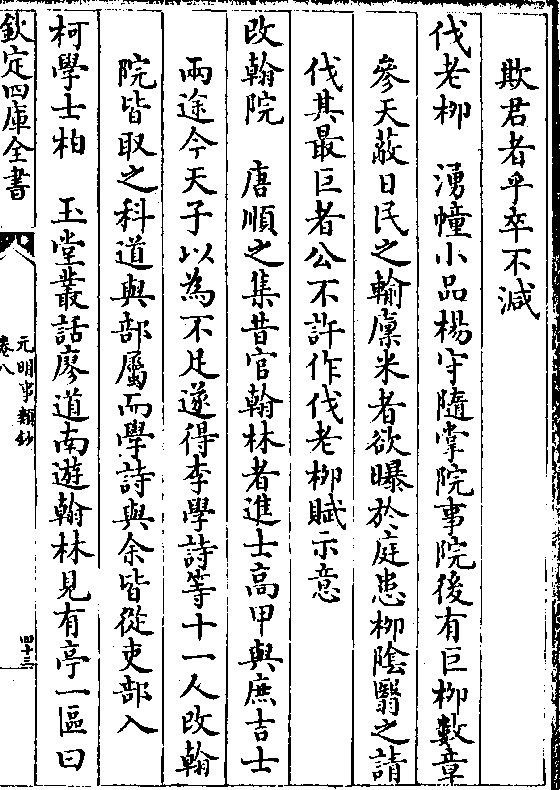 欺君者乎卒不減
伐老栁　湧幢小品楊守隨掌院事院後有巨栁數章
參天蔽日民之輸廪米者欲曝於庭患栁陰翳之請
伐其最巨者公不許作伐老栁賦示意
改翰院　唐順之集昔官翰林者進士高甲與庶吉士
兩途今天子以為不足遂得李學詩等十一人改翰
院皆取之科道與部屬而學詩與余皆從吏部入
柯學士柏　玉堂叢話廖道南遊翰林見有亭一區曰
欽定四庫全書
元明事類鈔
卷八
四十三